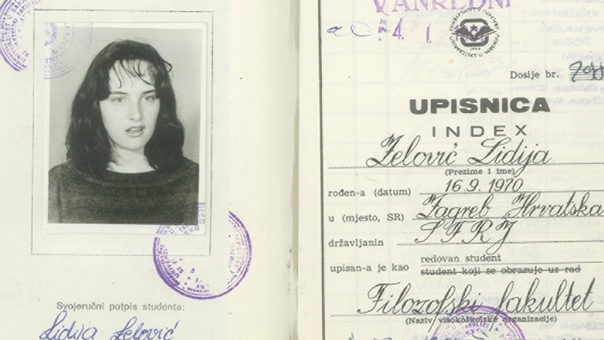 Svojeručni potpis studenta:
Lidija Zelović
VANREDNI
4. 1
Dosije br.
UPISNICA
INDEX
Zelović Lidija
(Prezime i ime)
rođen-a (datum) 16. 9. 1970
u (mjesto, SR) Zagreb Hrvatska
državljanin SFRJ
redovan student
upisan-a je kao student koji se obrazuje uz rad
Filozofski fakultet
(Naziv visokoškolske organizacije)